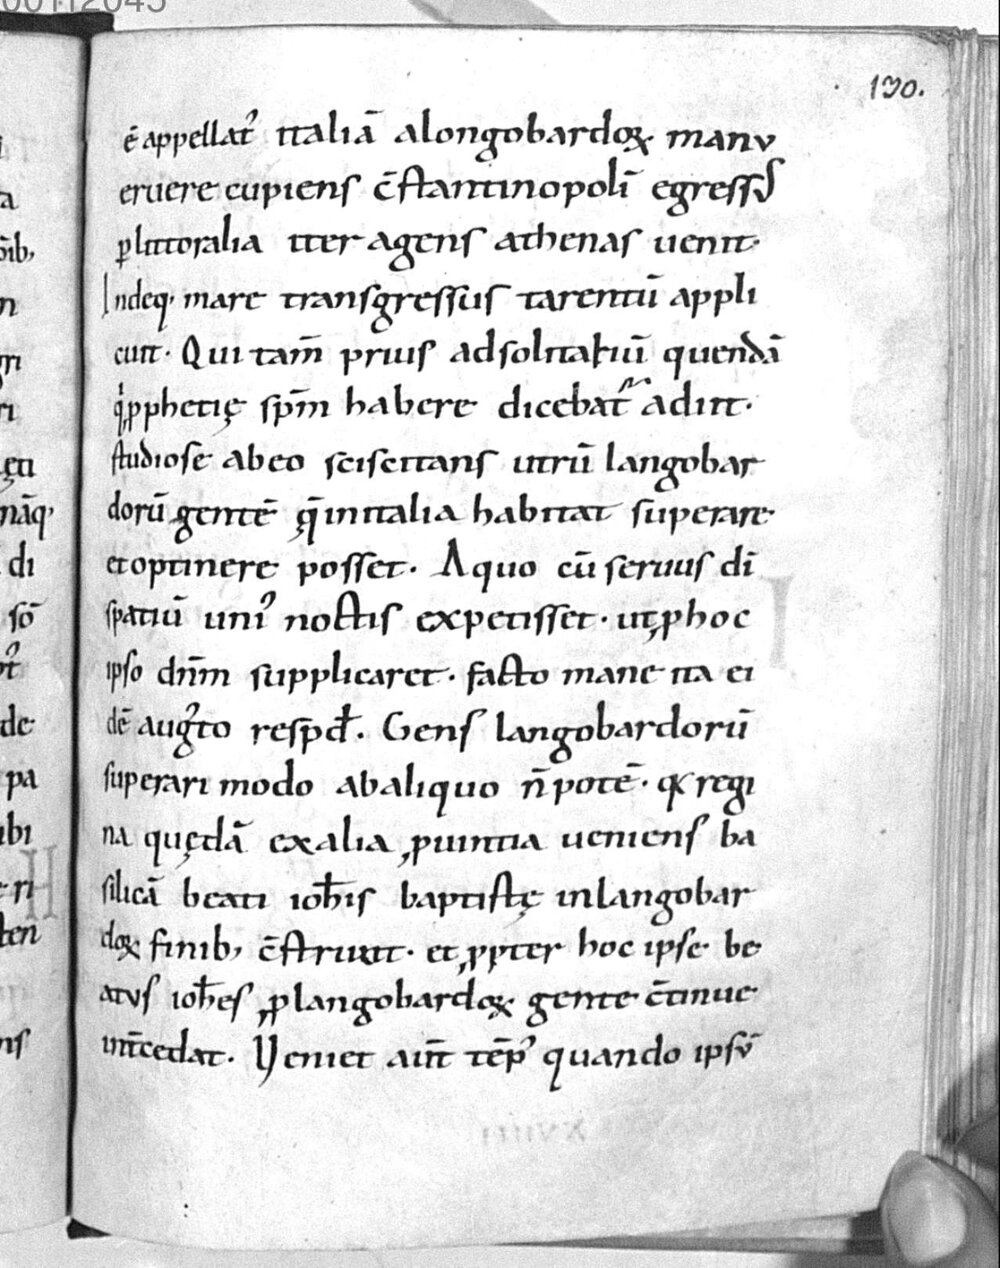 00112045
130.
ē appellat᷒ italiā alongobardoꝝ manu
eruere cupiens c̄stantinopolī egressus
ꝑ littoralia iter agens athenas uenit.
Indeq; mare transgressus tarentū appli
cuit. Qui tam̄ prius ad solitariū quendā
q̇ ꝓphetię sp̄m habere dicebat᷒ adiit.
studiose ab eo sciscitans utrū langobar
dorū gentē q̄ in italia habitat superare
et optinere posset. A quo cū seruus dī
spatiū uni᷒ noctis expetisset. ut ꝓ hoc
ipso dn̄m supplicaret. facto mane ita ei
dē aug᷒to respd̄. Gens langobardorū
superari modo ab aliquo n̄ potē. qꝛ regi
na quędā ex alia ꝓuintia ueniens ba
silicā beati ioh̄is baptistę in langobar
doꝝ finib; c̄struxit. et ꝓpter hoc ipse be
atus ioh̄es ꝓ langobardoꝝ gente c̄tinue
int̄cedat. Veniet aūt tēp᷒ quando ipsū